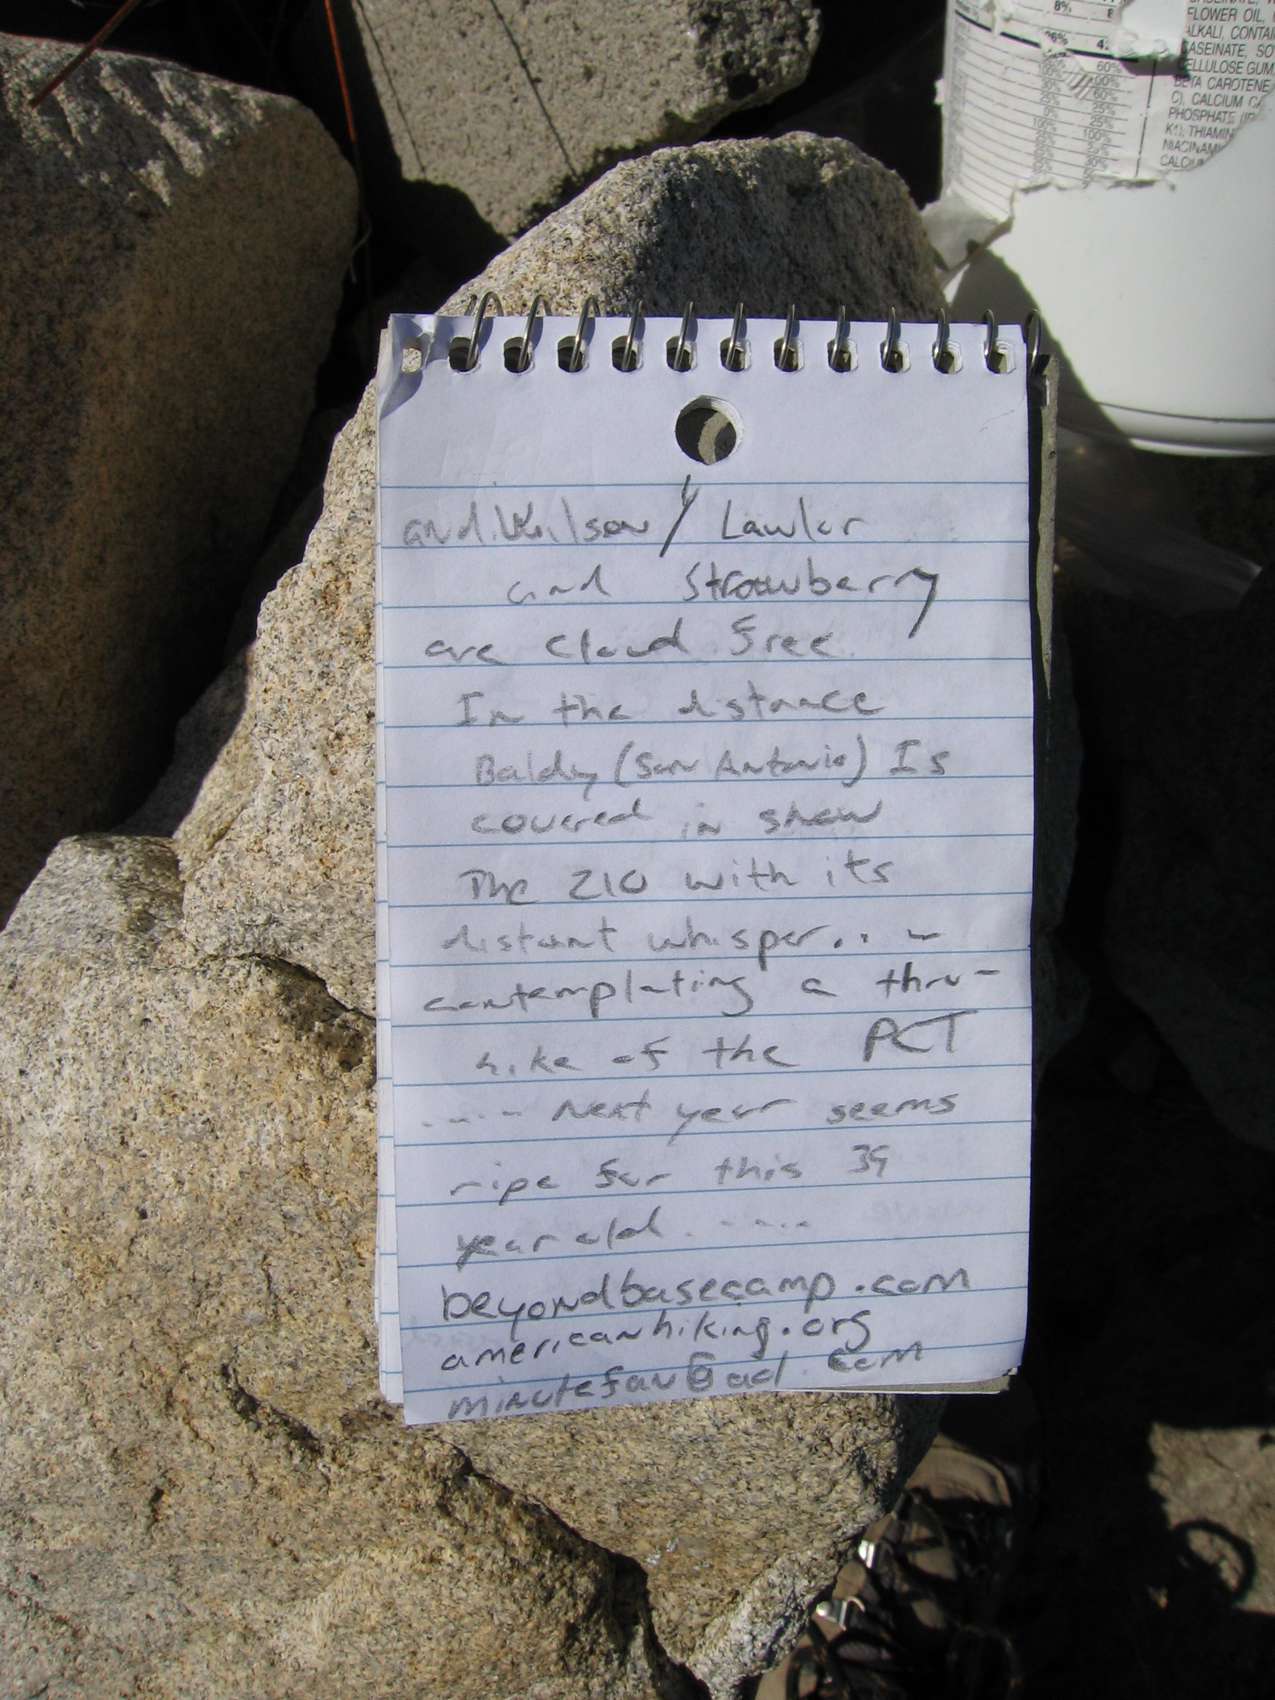 8% 8
FLOWER OIL,
ALKALI, CONTA
CASEINATE, SO
CELLULOSE GUM,
BETA CAROTENE
C), CALCIUM
PHOSPHATE
K1), THIAMIN
NIACINAM
CALCIU
60%
100%
60%
25%
25%
100%
25%
and Wilson / Lawlor
and Strawberry
are cloud free.
In the distance
Baldy (San Antonio) Is
covered in snow
The 210 with its
distant whisper...-
contemplating a thru-
hike of the PCT
.... Next year seems
ripe for this 39
year old.....
beyondbasecamp.com
americanhiking.org